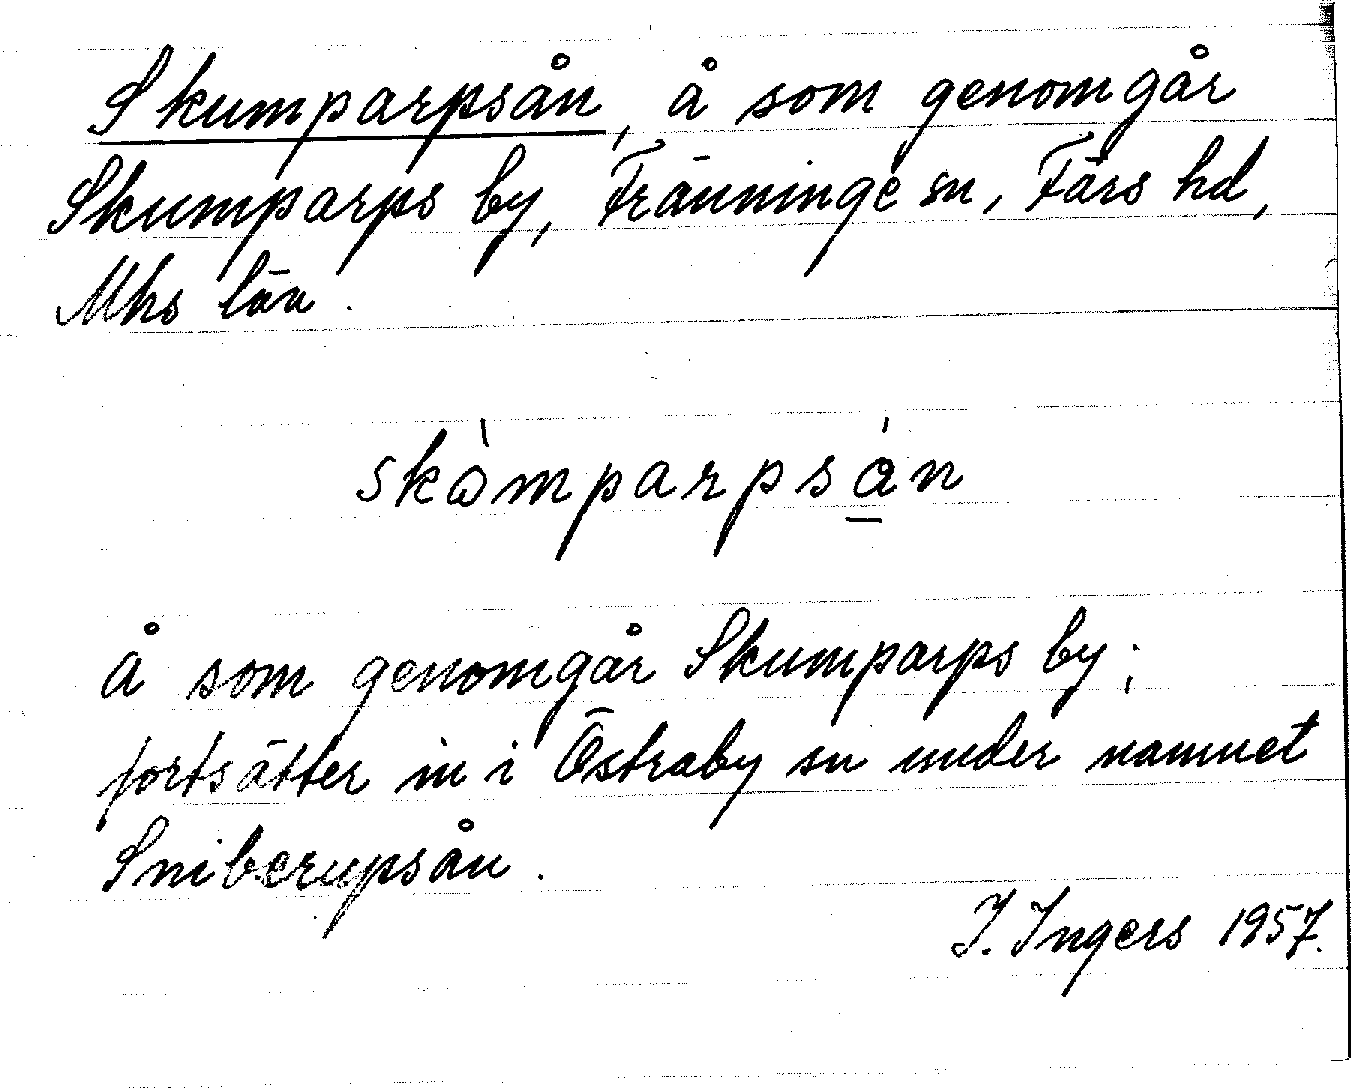 Skumparpsån, å som genomgår
Skumparps by, Fränninge sn, Färs hd,
Mhs län.
skòmparpsá̲n
å som genomgår Skumparps by;
fortsätter in i Östraby sn under namnet
Sniberupsån.
I. Ingers 1957.